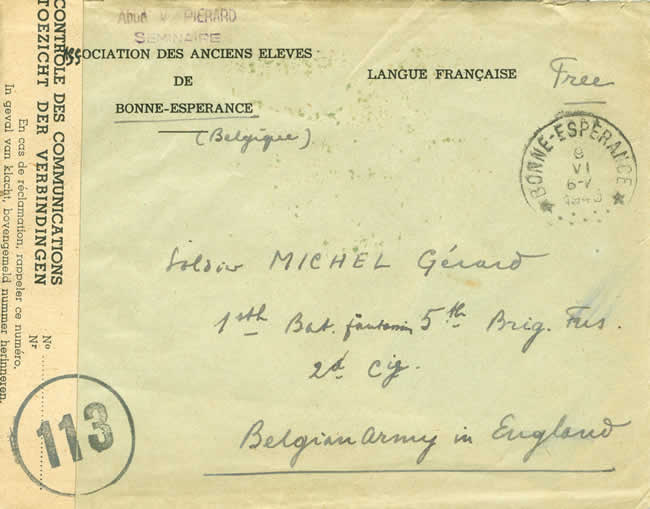 Abbé V. PIERARD
SEMINAIRE
ASSOCIATION DES ANCIENS ELEVES
DE
BONNE-ESPERANCE
(Belgique)
LANGUE FRANÇAISE
Free
BONNE-ESPERANCE
8
VI
6-
194
Soldier MICHEL Gérard
1sth Bat. 5th Brig. Fus.
2d Cig.
Belgian Army in England
CONTRÔLE DES COMMUNICATIONS
TOEZICHT DER VERBINDINGEN
En cas de réclamation, rappeler ce numéro.
In geval van klacht, bovengemeld nummer herinneren.
No
Nr
113